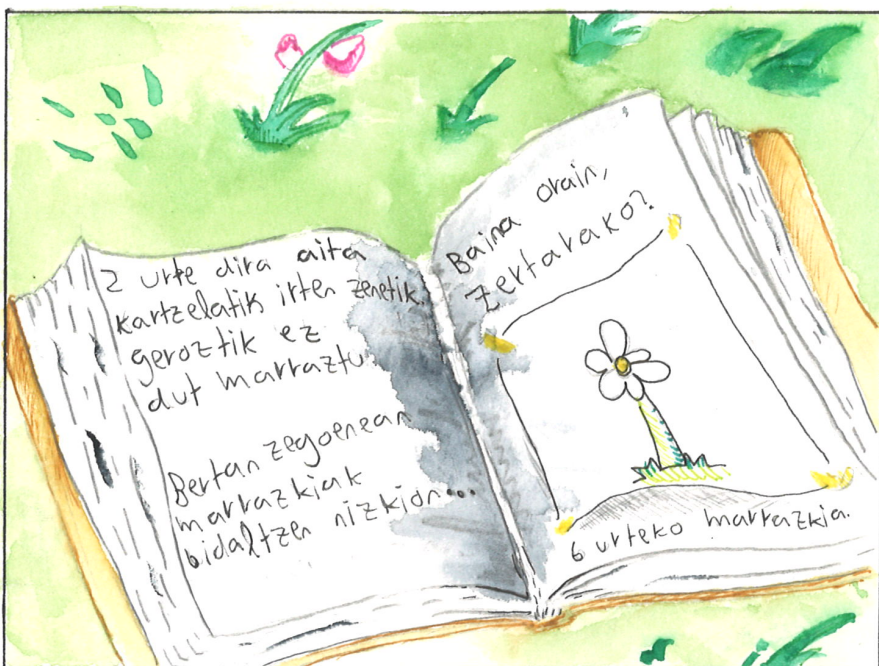 2 urte dira aita
kartzelatik irten zenetik.
geroztik ez
dut marraztu
Bertan zegoenean
marrazkiak
bidaltzen nizkion...
Baina orain,
zertarako?
6 urteko marrazkia.